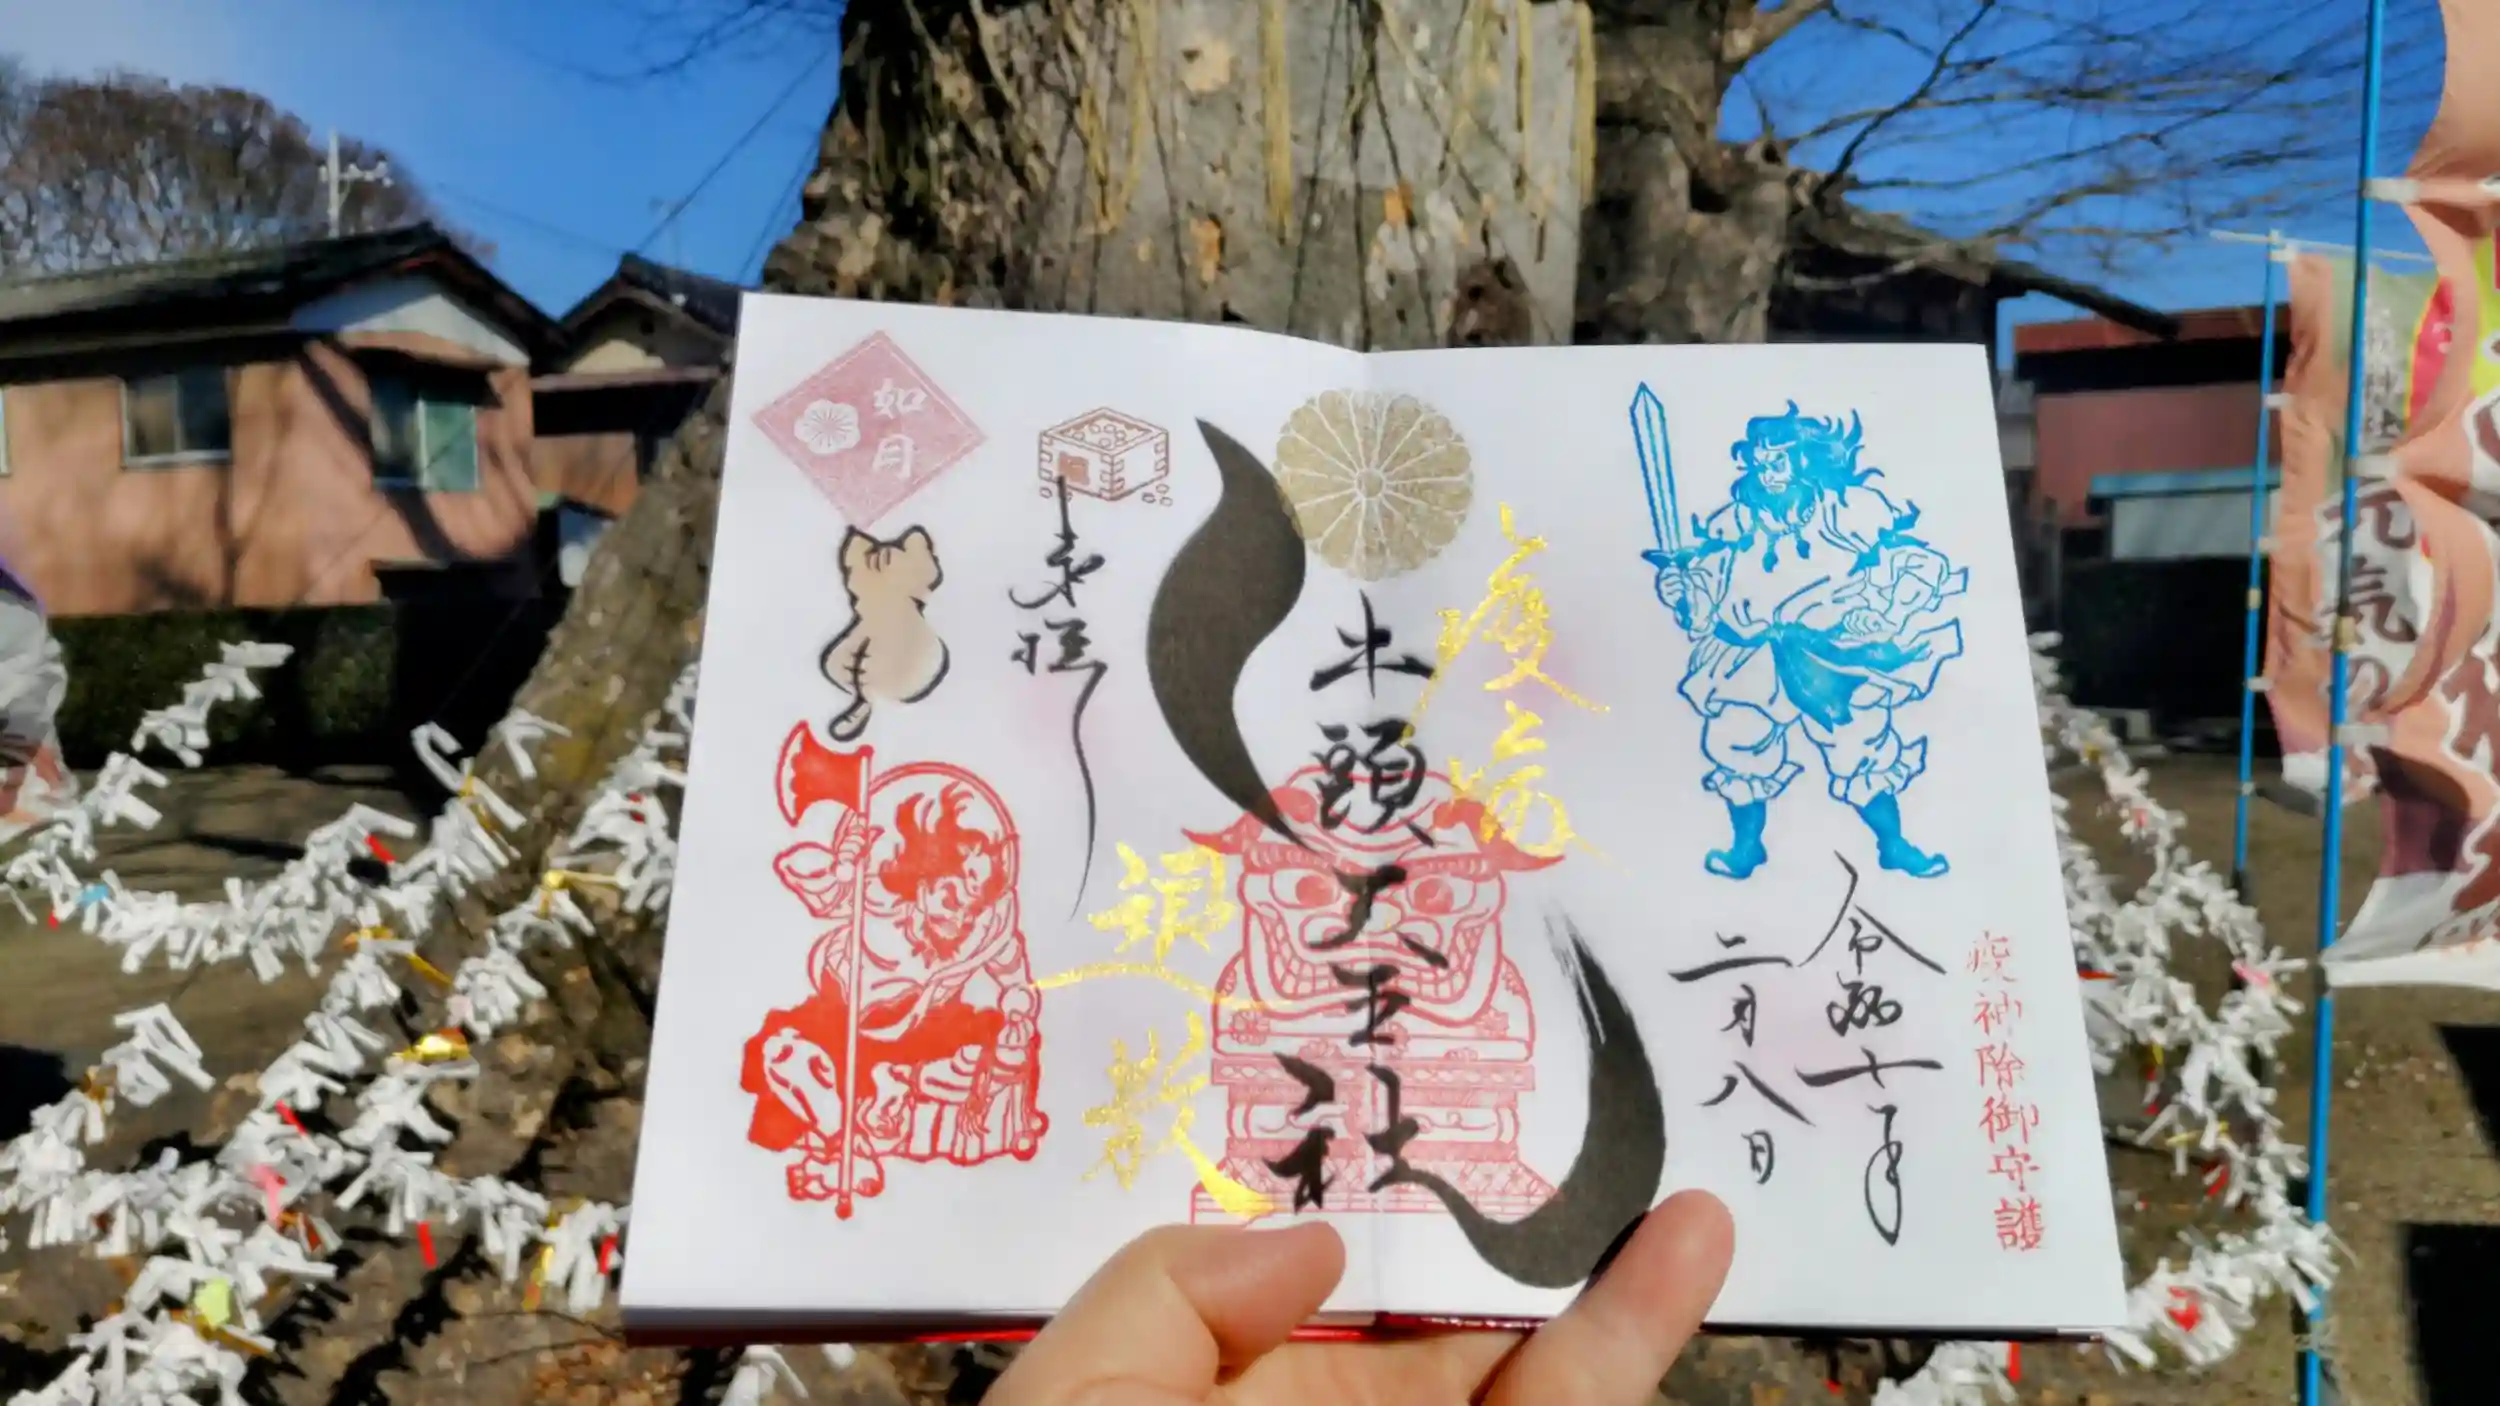 疫神除御守護
令和七年
二月八日
牛頭天王社
奉拝
如月
元気の